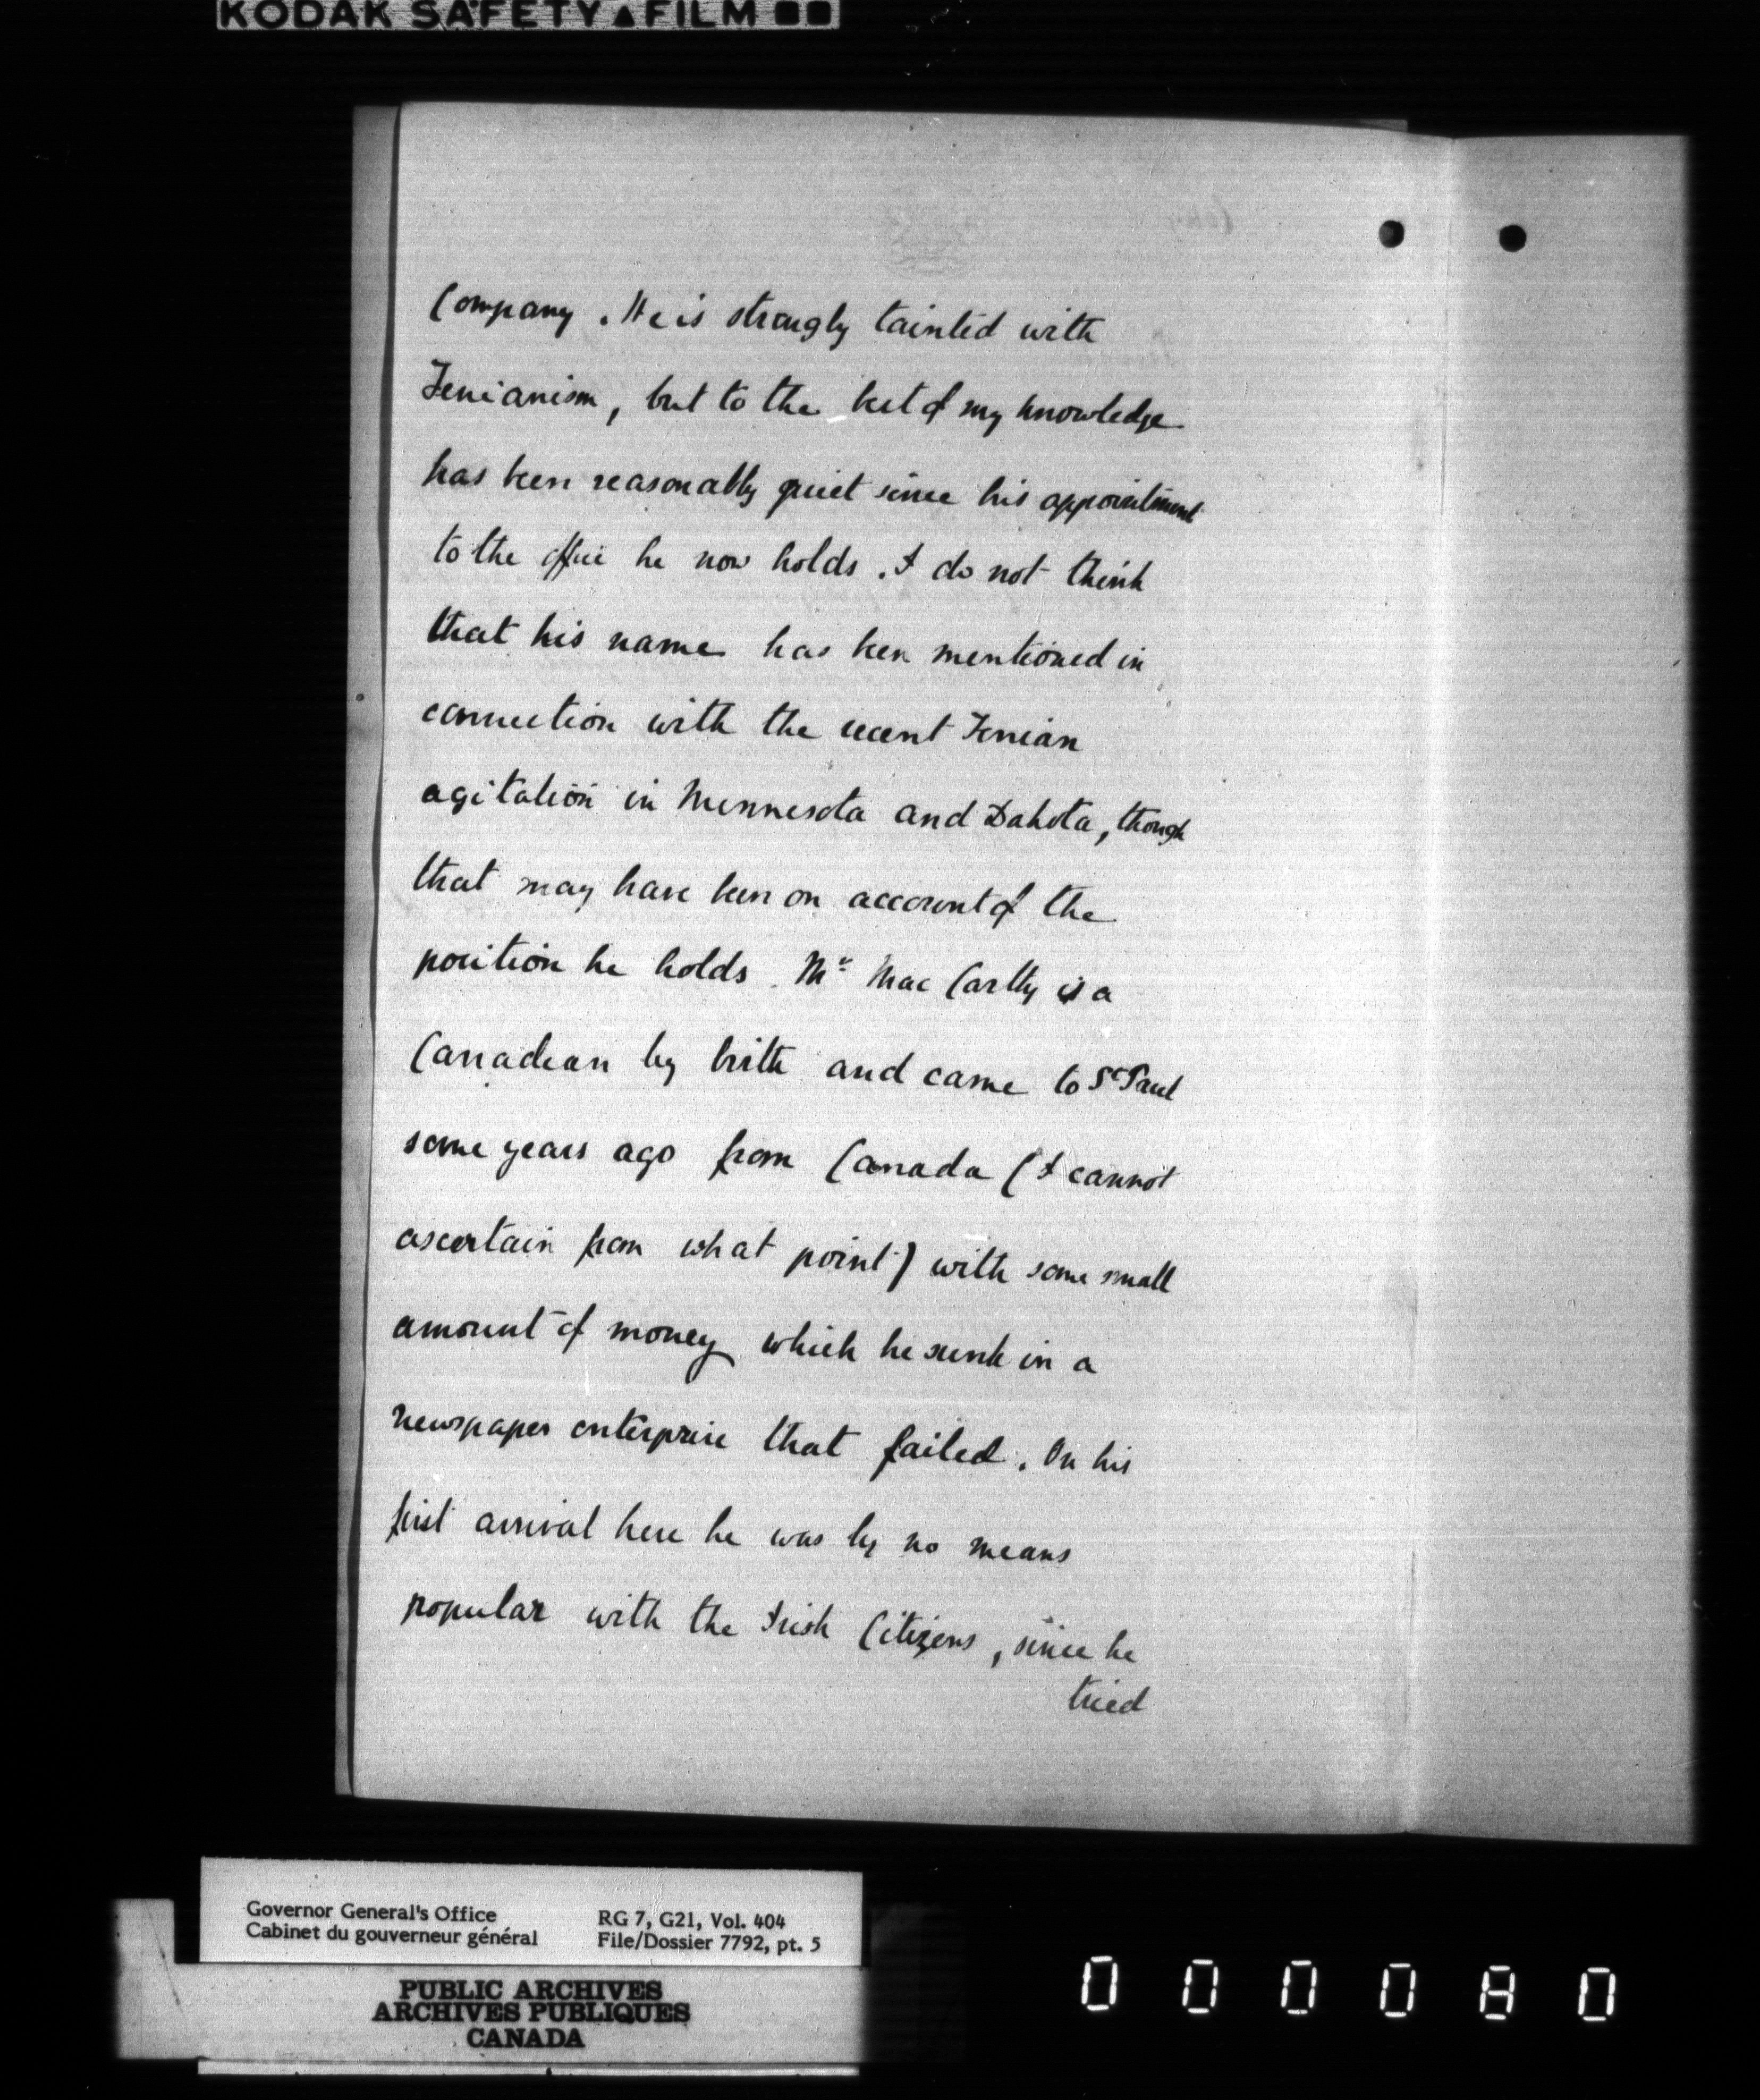 KODAK SAFETY▲FILM ■■
Company. He is strongly tainted with
Fenianism, but to the best of my knowledge
has been reasonably quiet since his appointment
to the office he now holds. I do not think
that his name has been mentioned in
connection with the recent Fenian
agitation in Minnesota and Dakota, though
that may have been on account of the
position he holds. Mr Mac Carthy is a
Canadian by birth and came to St Paul
some years ago from Canada (I cannot
ascertain from what point) with some small
amount of money which he sunk in a
newspaper enterprise that failed. On his
first arrival here he was by no means
popular with the Irish Citizens, since he
tried
Governor General's Office
Cabinet du gouverneur général
RG 7, G21, Vol. 404
File/Dossier 7792, pt. 5
PUBLIC ARCHIVES
ARCHIVES PUBLIQUES
CANADA
000080